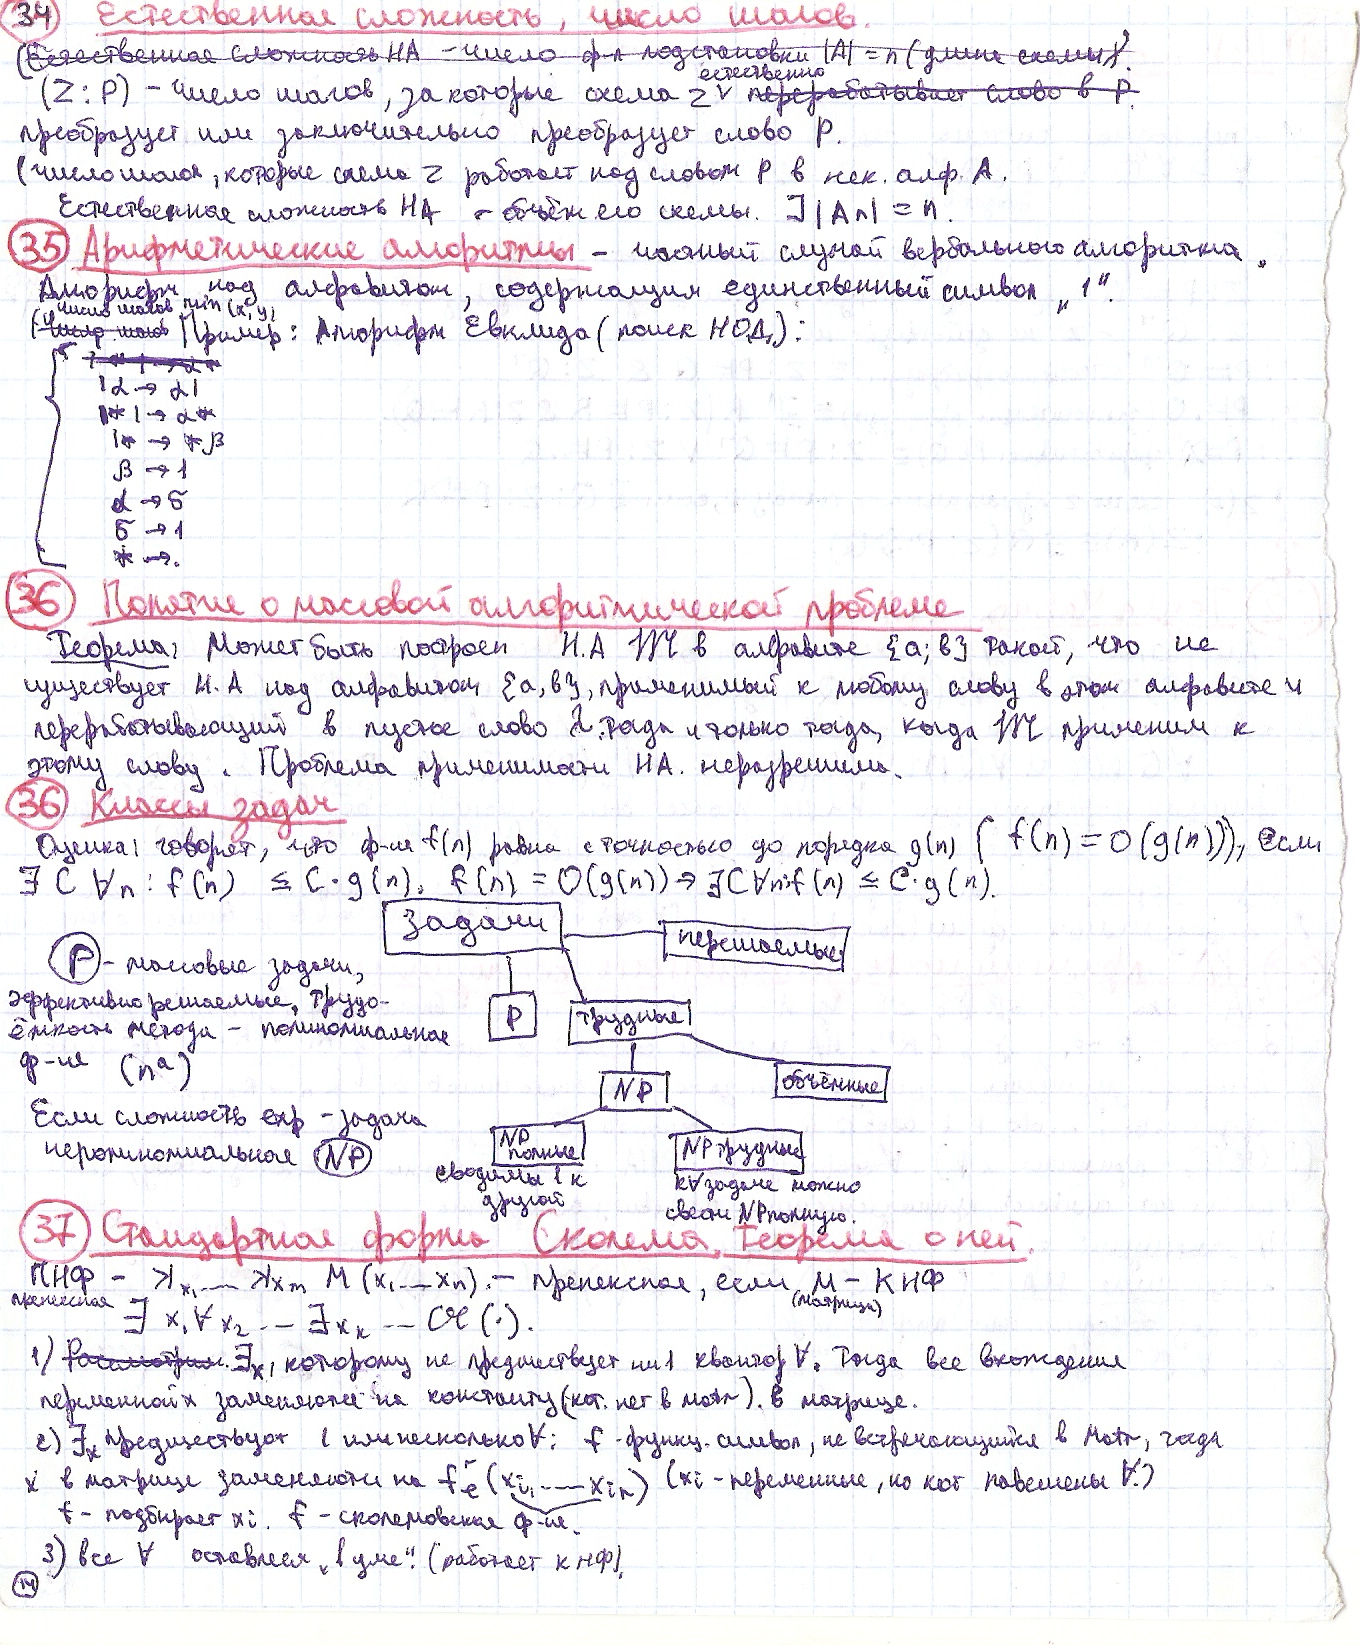 34 Естественная сложность, число шагов.
(Естественная сложность НА - число ф-л подстановки |A| = n (длина схемы)).
(Z : P) - число шагов, за которые схема Z естественно перерабатывает слово в P.
преобразует или заключительно преобразует слово P.
(число шагов, которые схема Z работает над словом P в нек. алф. A.
Естественная сложность НА - объём его схемы. ∃ |An| = n.
35 Арифметические алгоритмы - частный случай вербального алгоритма.
Алгорифм над алфавитом, содержащим единственный символ „1“.
число шагов min (x, y)
число шагов Пример: Алгорифм Евклида (поиск НОД):
1α → α1
1*1 → α*
1* → *β
β → 1
α → Б
Б → 1
* →.
36 Понятие о массовой алгоритмической проблеме
Теорема: Может быть построен Н.А 𝔐 в алфавите {a; b} такой, что не
существует Н.А над алфавитом {a, b}, применимый к любому слову в этом алфавите и
перерабатывающий в пустое слово λ тогда и только тогда, когда 𝔐 применим к
этому слову. Проблема применимости НА. неразрешима.
36 Классы задач
Оценка: говорят, что ф-ия f(n) равна с точностью до порядка g(n) (f(n) = O(g(n))), если
∃ C ∀n : f(n) ≤ C·g(n). f(n) = O(g(n)) → ∃C∀n: f(n) ≤ C·g(n).
задачи
нерешаемые
P - массовые задачи,
эффективно решаемые, трудо-
ёмкость метода - полиномиальная
ф-ия (nᵃ)
P
трудные
NP
объёмные
Если сложность exp - задача
неполиномиальная NP
NP полные
сводимы 1 к
другой
NP трудные
к ∀ задаче можно
свести NP полную.
37 Стандартная форма Сколема. Теорема о ней.
ПНФ - Kx₁ ... Kxm M (x₁...xn). - пренексная, если M - КНФ
пренексная
(матрица)
∃ x₁ ∀ x₂ ... ∃ xk ... 𝔄 (·).
1) Рассмотрим ∃x, которому не предшествует ни 1 квантор ∀. Тогда все вхождения
переменной x заменяются на константу (кот. нет в матр). в матрице.
2) ∃x предшествуют 1 или несколько ∀: f - функц. символ, не встречающийся в матр, тогда
x в матрице заменяется на f (xi₁ ... xir) (xi - переменные, на кот навешены ∀.)
f - подбирает xi. f - сколемовская ф-ия.
3) все ∀ оставляем „в уме“. (работает КНФ).
14